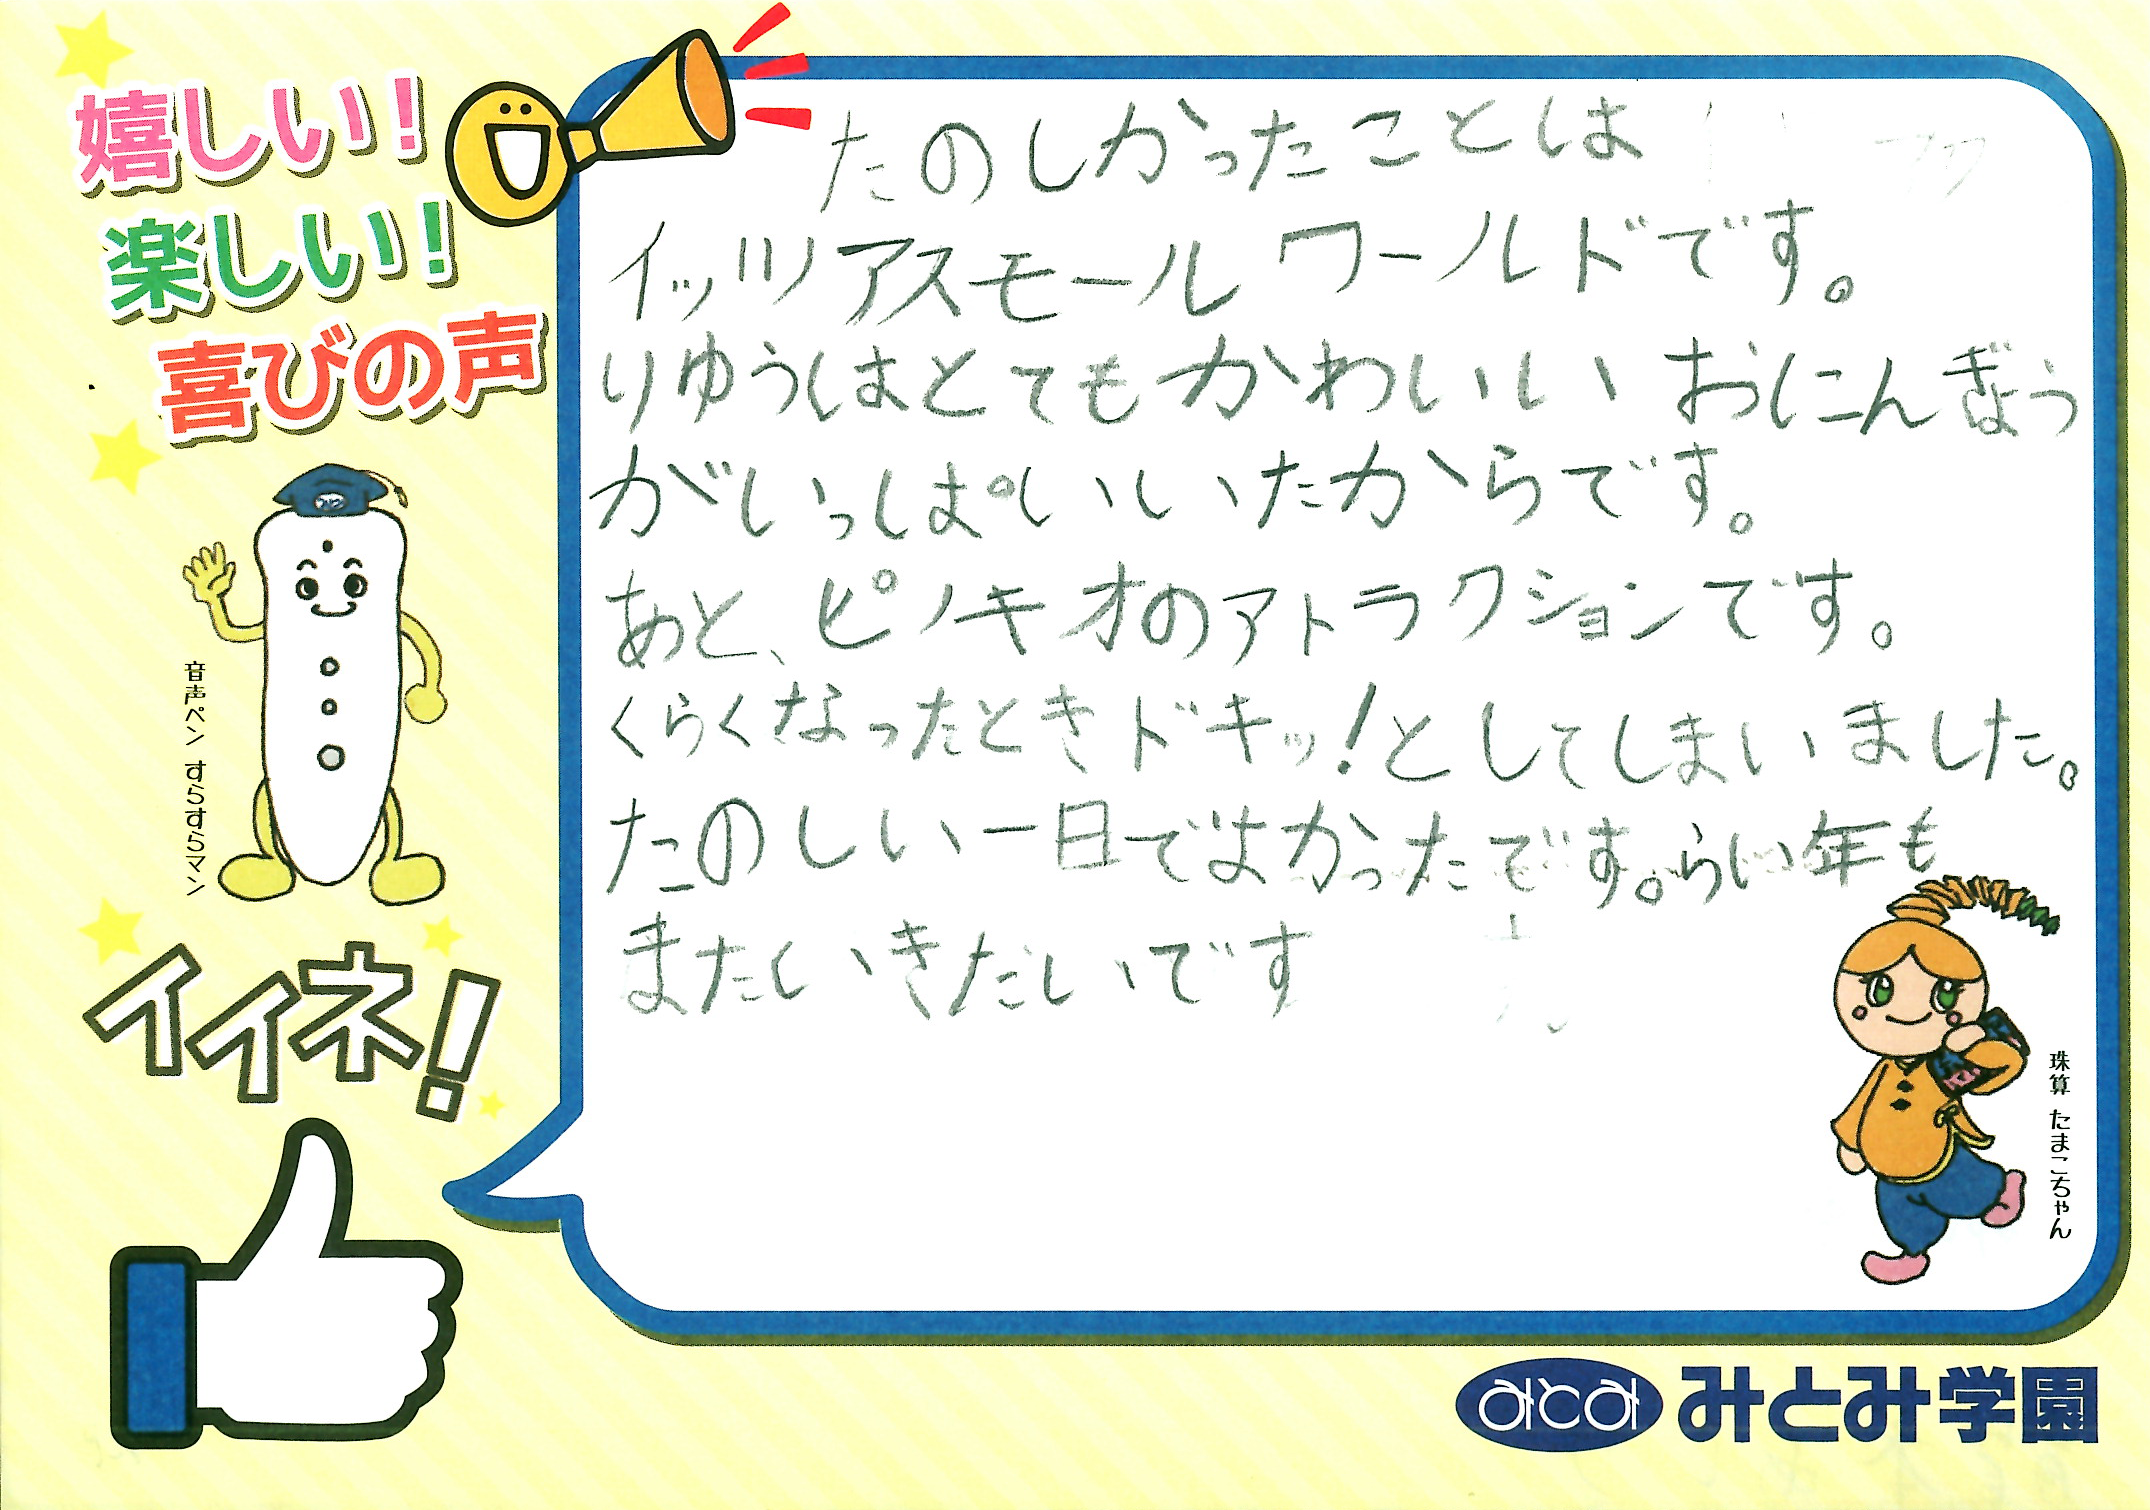 嬉しい!
楽しい!
喜びの声
たのしかったことは
イッツアスモールワールドです。
りゆうはとてもかわいいおにんぎょう
がいっぱいいたからです。
あと、ピノキオのアトラクションです。
くらくなったときドキッ!としてしまいました。
たのしい一日でよかったです。らい年も
またいきたいです
音声ペン すらすらマン
イイネ!
珠算 たまこちゃん
みとみ
みとみ学園